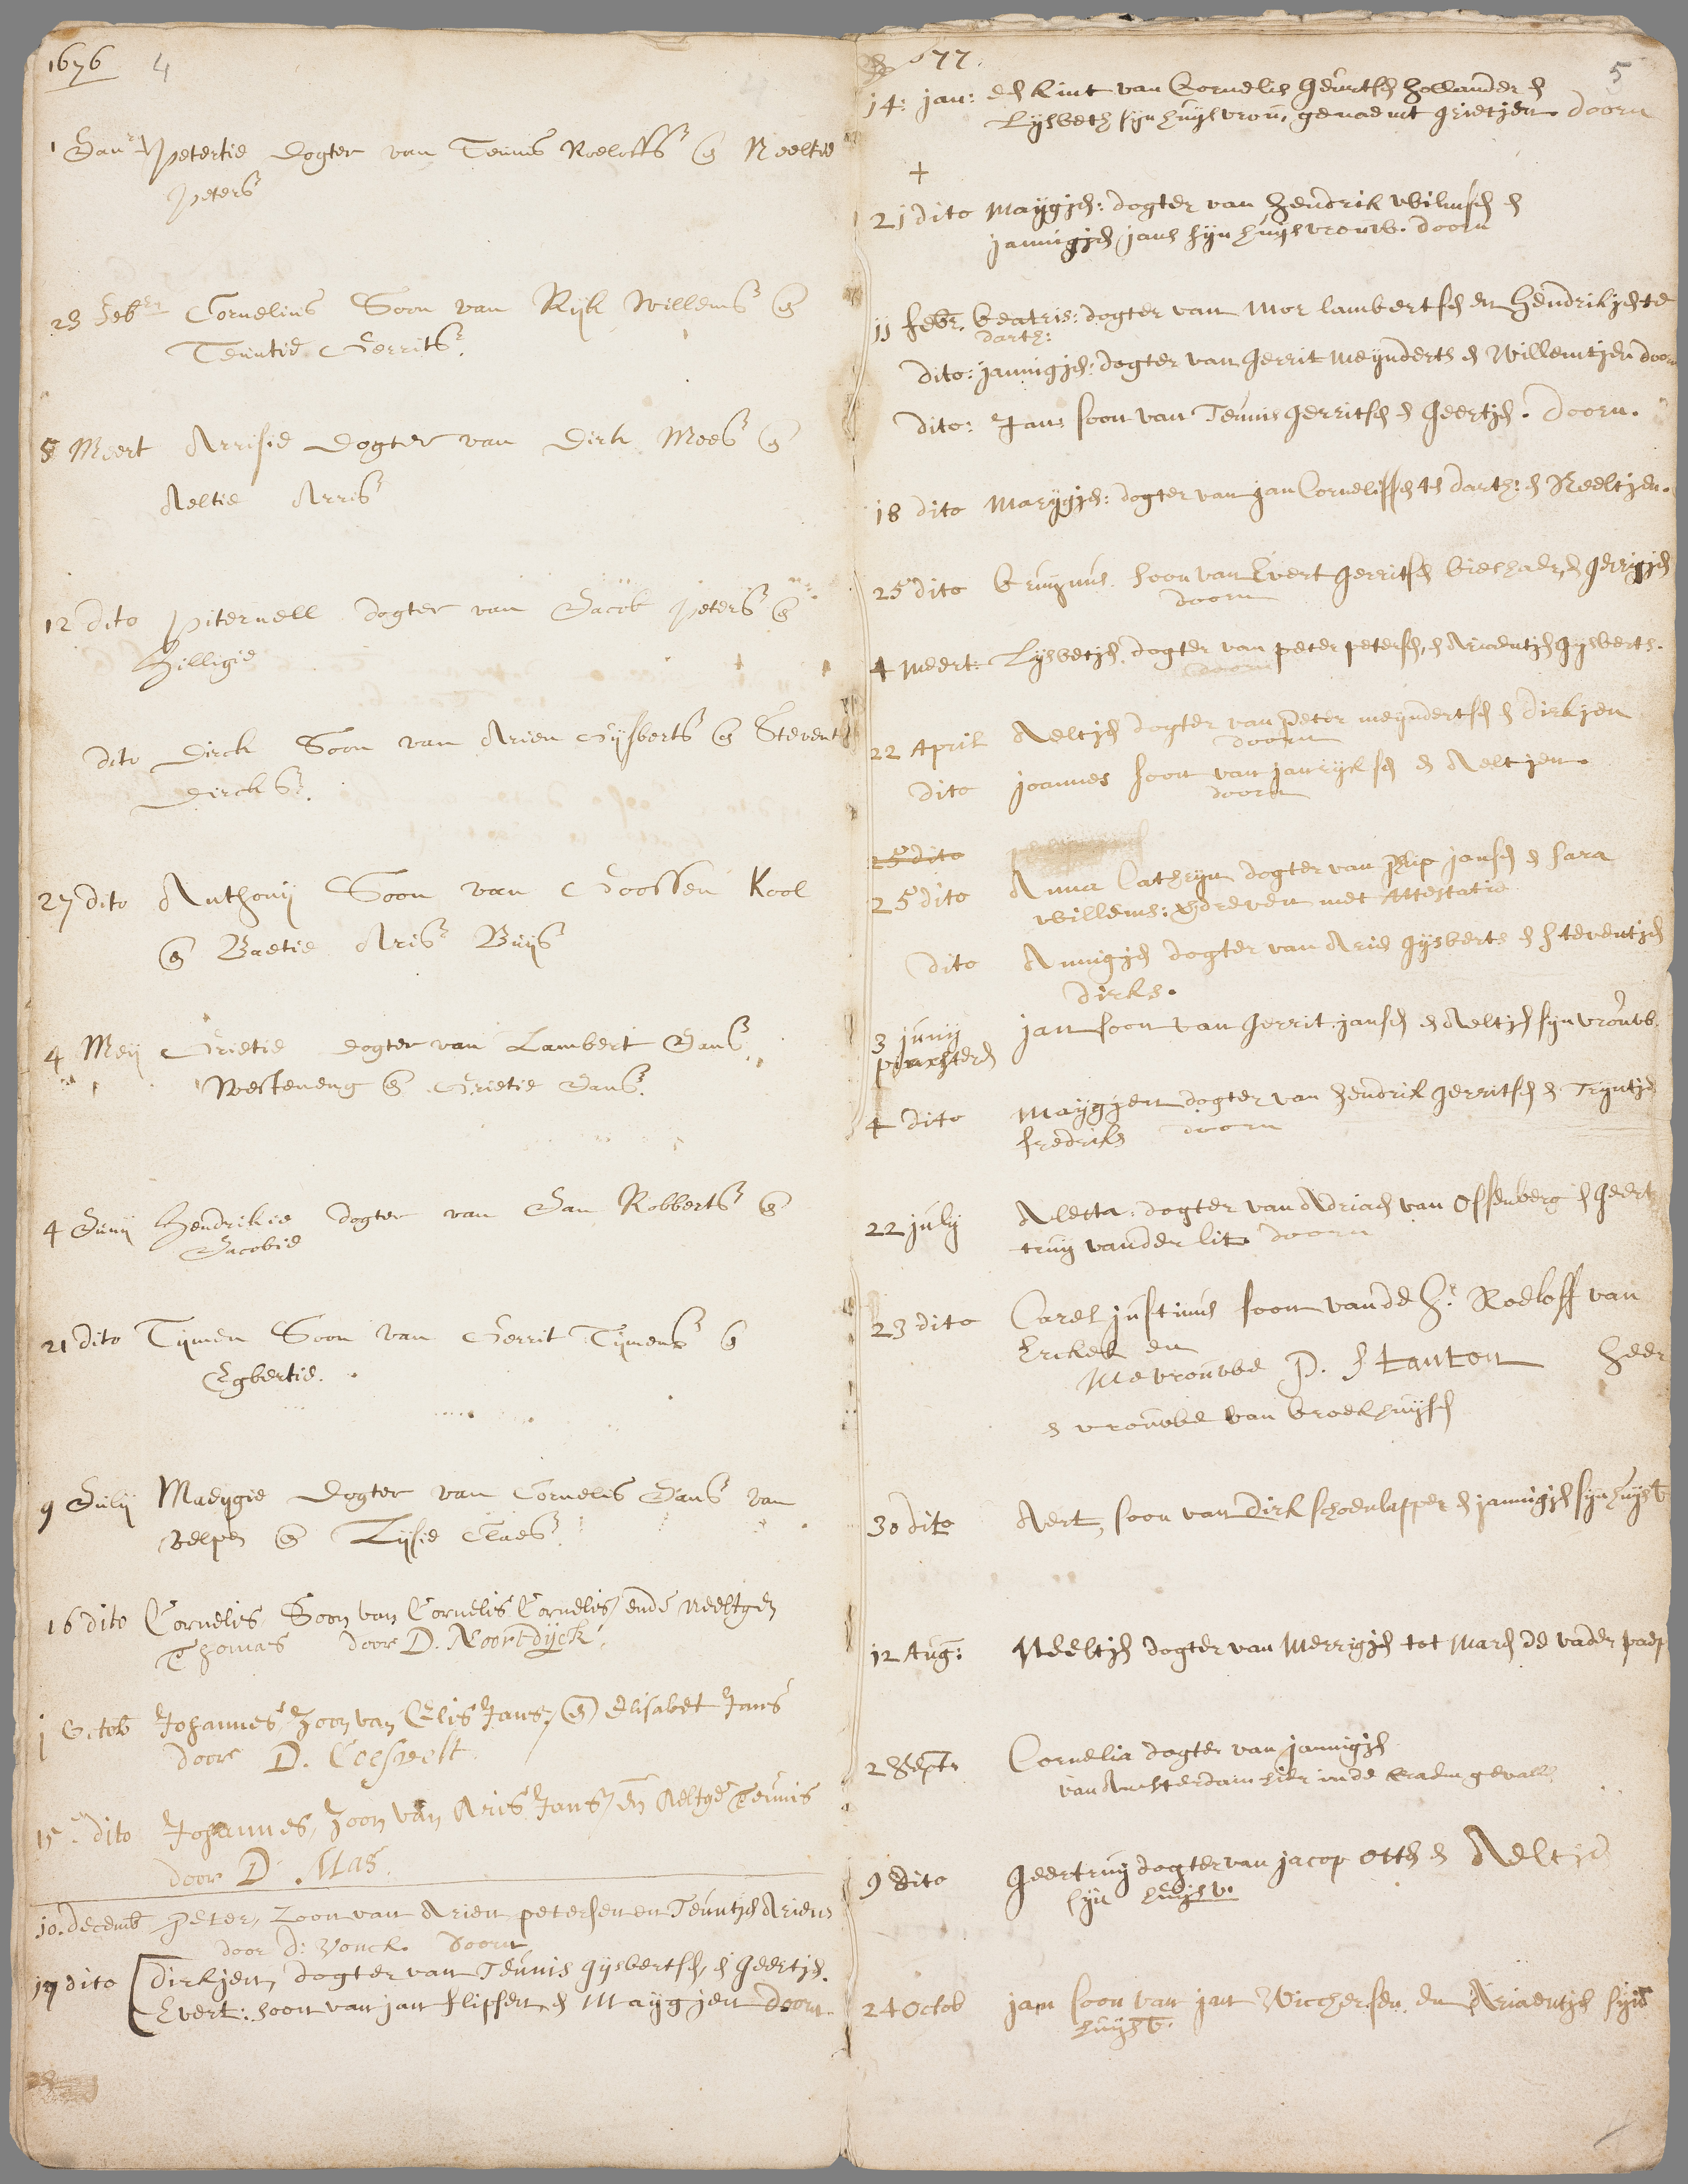 1676 4
1 Janr Petertie dogter van Teunis Roeloffs en Neeltie
Peters
23 Feber Cornelius Soon van Rijk Willems en
Teuntie Gerrits
8 Meert Arrisie dogter van Dirk Mees en
Aeltie Arris
12 dito Piternell dogter van Jacob Peters en
Hilligie
dito Dirck Soon van Arien Gijsberts en Steventie
Dircks.
27 dito Anthonij Soon van Goossen Kool
en Baetie Aris Buijs
4 Meij Grietie dogter van Lambert Jans
Westeneng en Grietie Jans.
4 Junij Hendrikie dogter van Jan Robberts en
Jacobie
21 dito Tijmen Soon van Gerrit Tijmens en
Egbertie.
9 Julij Maeijgie dogter van Cornelis Jans van
Velpen en Lijsie Claes
16 dito Cornelis Soon van Cornelis Cornelis, ende Neeltgen
Thomas door D. Noortdyck.
1 Octob Johannes, Zoon van Elis Jans, en Elisabet Jans
door D. Coesvelt
15en dito Johannes, Zoon van Aris Jans, en Aeltge Teunis
door D. Mas.
10. decemb Peter, Zoon van Arien petersen en Teuntjen Ariens
door d: Vonck. Doorn
17 dito Dirkjen, dogter van Teunis gijsbertsen, en Geertjen.
Evert: soon van jan flipsen en Maijgjen Doorn.
1677. 5
14: jan: een kint van Cornelis Geurtsen Hollander en
Lijsbeth sijn huijsvrou, genaemt grietjen doorn
+
21 dito Maijgjen: dogter van Hendrik Wilmsen en
jannigjen jans sijn huijsvrouw. doorn
11 febr. beatris: dogter van Mor lambertsen en Hendrikjen te
darth:
dito: jannigjen: dogter van Gerrit Meijnderts en Willemtjen doorn
dito: Jan: soon van Teunis gerritsen en Geertjen. Doorn.
18 dito Marijgjen: dogter van jan Cornelissen te darth: en Neeltjen.
25 dito soon van Evert gerritsen en gerrigjen
doorn
4 Meert: Lijsbetjen. dogter van peter petersen, en Ariaentjen gijsberts.
doorn
22 April Aeltjen dogter van Peter meijndertsen en dirkjen
doorn
dito joannes soon van jan rijksen en Aeltjen.
doorn
25 dito
25 dito Anna Cathrijn dogter van flip jansen en sara
Willems: met Attestatie
dito Annigjen dogter van Arie gijsberts en steventjen
dirks.
3 junij jan soon van gerrit jansen en Aeltjen sijn vrouw.
pinxsteren
4 dito Maijgjen dogter van Hendrik gerritsen en Trijntjen
fredriks doorn
22 julij Aletta: dogter van Adriaen van Ossenberg en geert
truij vander lit doorn
23 dito Carel justinus soon van de Hr. Roeloff van
Erckel en
Mevrouwe P. Stanton Heer
en vrouwe van broekhuijsen
30 dito Aert, soon van dirk schoenlapper en jannigjen sijn huijsv
12 Aug: Neeltjen dogter van Merrigjen tot Maren de vader paep
2 Sept. Cornelia dogter van jannigjen
van Amsterdam hier in de kraem gevall
9 dito Geertruij dogter van jacop otten en Aeltje
sijn huijsv.
24 Octob jan soon van jan Wicchersen en Ariaentjen sijn
huijsv.